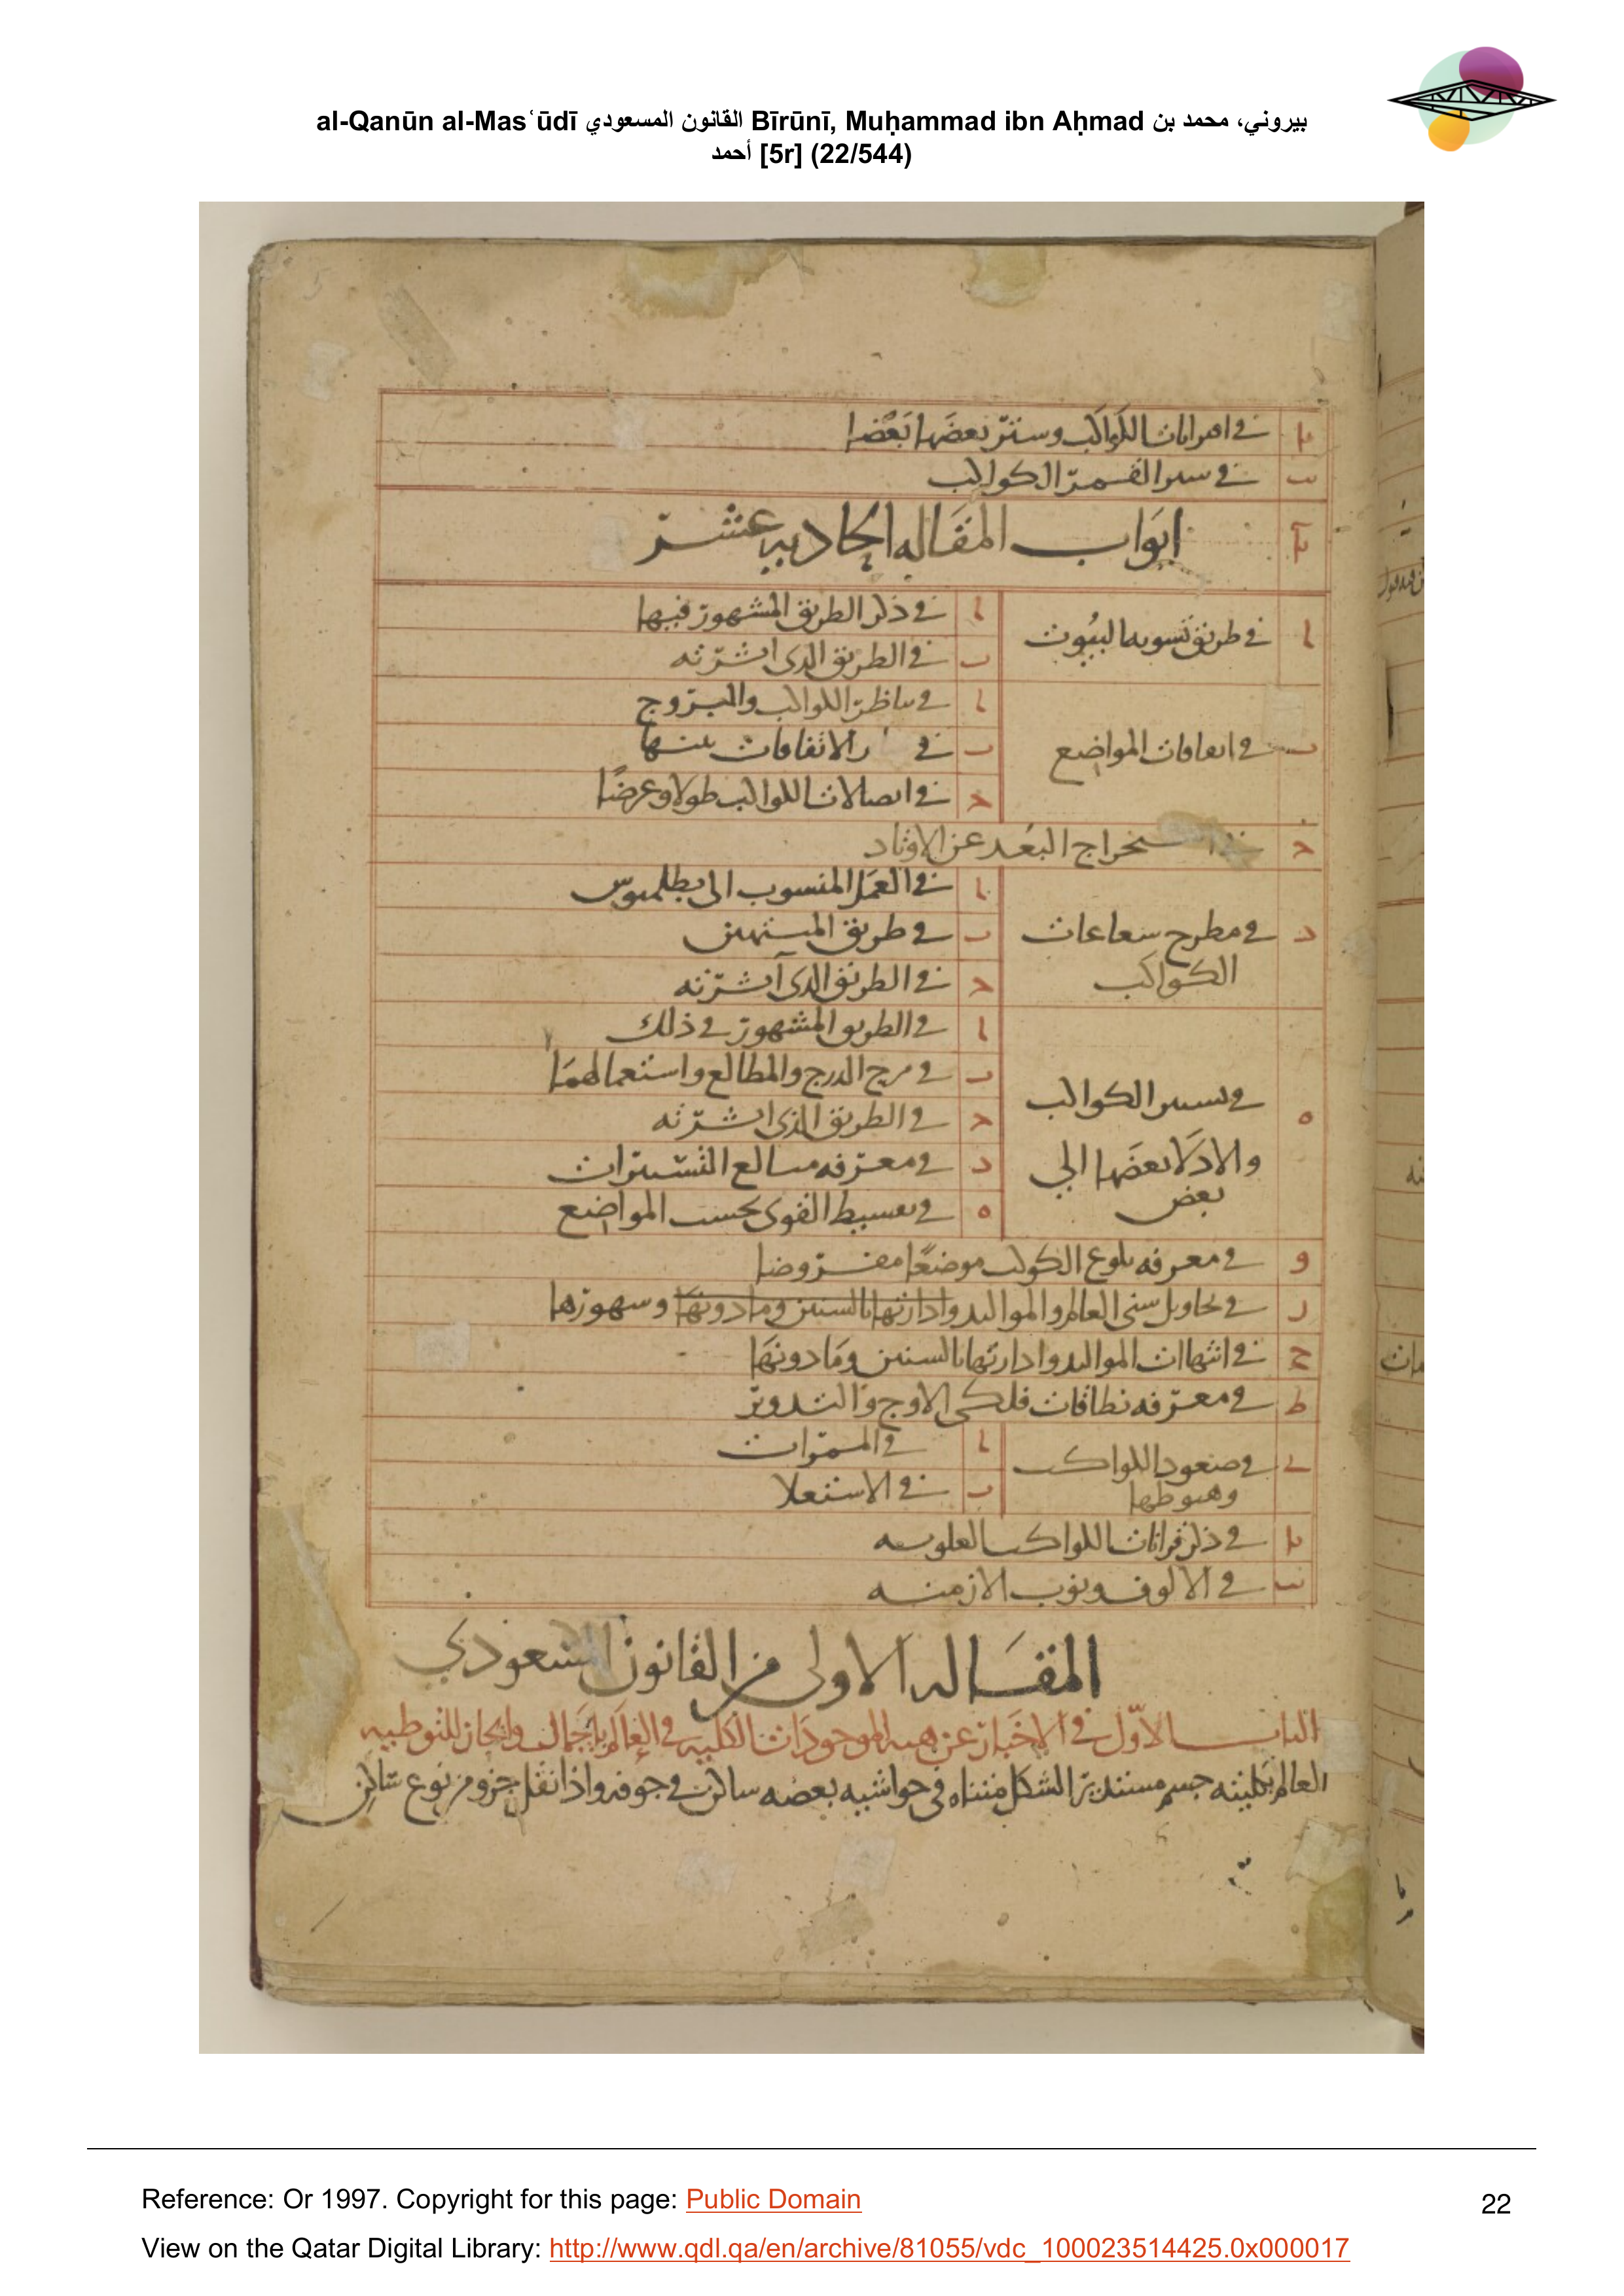 al-Qanūn al-Masʿūdī القانون المسعودي Bīrūnī, Muḥammad ibn Aḥmad بيروني، محمد بن
أحمد [5r] (22/544)
يا في اقترانات الكواكب وستر بعضها بعضا
يب في ستر القمر الكواكب
يا ابواب المقاله الحاديه عشر
ا في طريق تسويه البيوت
ا في ذكر الطريق المشهور فيها
ب في الطريق الذى اثرته
ب في اتفاقات المواضع
ا في تناظر الكواكب والبروج
ب في الاتفاقات بينها
ح في اتصالات الكواكب طولا وعرضًا
ح في استخراج البعد عن الاوتاد
د في مطرح شعاعات
الكواكب
ا في العمل المنسوب الى بطلميوس
ب في طريق
ح في الطريق الذى اثرته
ه في تسيير الكواكب
والادلا بعضها الي
بعض
ا في الطريق المشهور في ذلك
ب في مزج الدرج والمطالع واستعمالهما
ح في الطريق الذى اثرته
د في معرفه مبالغ التسييرات
ه في تقسيط القوى بحسب المواضع
و في معرفه بلوغ الكوكب موضعًا مفروضا
ز في تحاويل سنى العالم والمواليد وادارتها بالسنين وما دونها وشهورها
ح في انتهاات المواليد وادارتها بالسنين وما دونها
ط في معرفه نطاقات فلكى الاوج والتدوير
ى في صعود الكواكب
وهبوطها
ا في الممرات
ب في الاستعلا
يا في ذكر قرانات الكواكب العلويه
يب في الالوف ونوب الازمنه
المقاله الاولى من القانون المسعودي
الباب الاول في الاخبار عن هيه الموجودات الكليه في العالم باجمال وايجاز للتوطيه
العالم بكليته جسم مستدير الشكل متناه في حواشيه بعضه ساكن في جوفه واذا نقل جزو من نوع ساكن
Reference: Or 1997. Copyright for this page: Public Domain
22
View on the Qatar Digital Library: http://www.qdl.qa/en/archive/81055/vdc_100023514425.0x000017